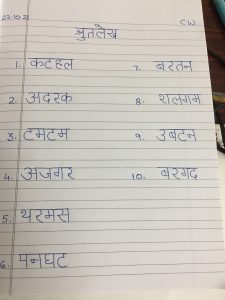 22.10.21 CW
श्रुतलेख
1. कटहल 7. बरतन
2. अदरक 8. शलगम
3. टमटम 9. उबटन
4. अजगर 10. बरगद
5. थरमस
6. पनघट